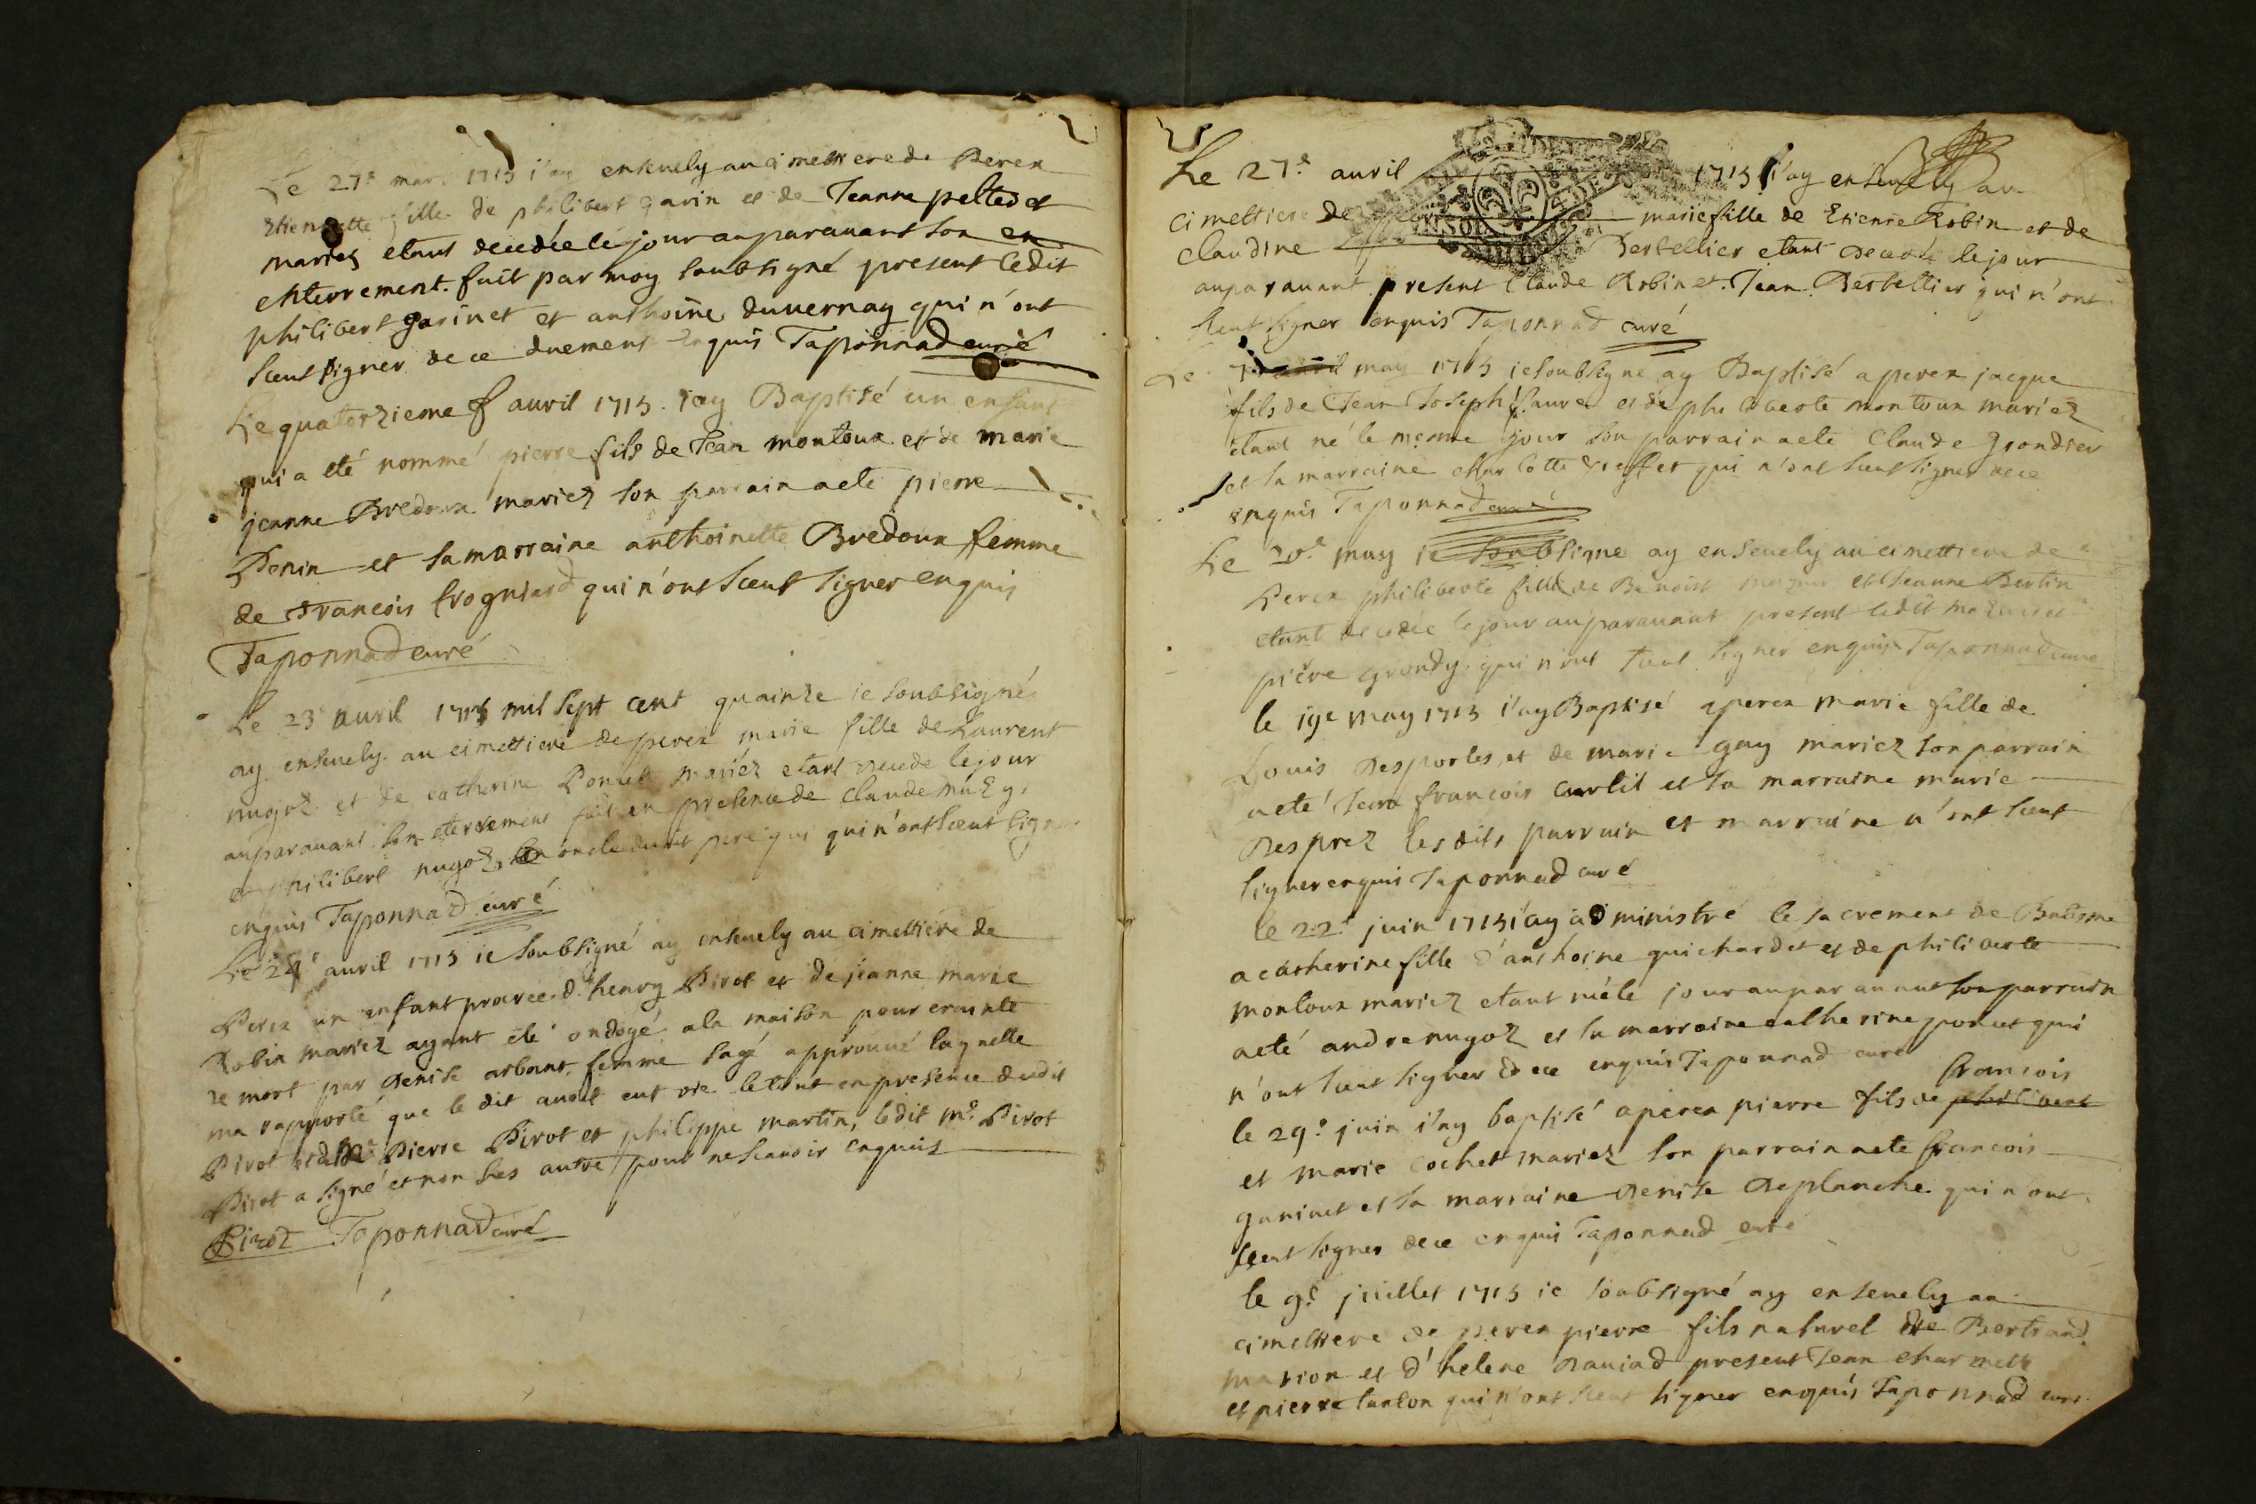 Le 27e mars 1715 i'ay enseuely au cimettiere de Perex
Etiennette fille de philibert garin et de Jeanne peltedet
mariez etant decedée le jour auparauant son en
enterrement fait par moy soubsigné present ledit
philibert garinet et anthoine duuernay qui n'ont
sceut signer de ce duement enquis Taponnad curé
Le quatorzieme auril 1715 i'ay Baptisé un enfant
qui a eté nommé pierre fils de Jean montoux et de marie
jeanne Bredoux mariez son parrain a eté pierre
Penin et sa marraine anthoinette Bredoux femme
de francois frogniard qui n'ont sceut signer enquis
Taponnad curé
Le 23e auril 1715 mil sept cent quainze ie soubsigné
ay enseuely au cimettiere de perex marie fille de Laurent
nugoz et de catherine Poncet mariez etant decede le jour
auparauant son eterrement fait en presence de claude
et philibert nugoz oncle dudit pere qui qui n'ont sceut signer
enquis Taponnad curé
Le 24e auril 1715 ie soubsigné ay enseuely au cimettiere de
Perex un enfant d'henry Pirot et de jeanne marie
Robin mariez ayant eté ondoyé a la maison pour crainte
de mort par denise arbant femme sage approuué laquelle
ma rapporté que le dit auoit eut vie le tout en presence dudit
Pirot Pierre Pirot et philippe martin, ledit me Pirot
Pirot a signé et non les autre pour ne scauoir enquis
Pirot Taponnad curé
Le 27e auril 1715 i'ay enseuely au
cimettiere de marie fille de Etienne Robin et de
claudine Bertellier etant decedé le jour
auparauant present Claude Robin et Jean Bertellier qui n'ont
sceut signer enquis Taponnad curé
Le auril may 1715 ie soubsigne ay Baptisé a perex jacque
fils de Jean Joseph faure et de philiberte montoux mariez
etant né le meme jour son parrain a eté Claude grondier
et sa marraine charlotte qui n'ont sceut signer de ce
enquis Taponnad curé
Le may ie soubsigne ay enseuely au cimettiere de
Perex philiberte fille de Benoist et Jeanne Bertin
etant decedée le jour auparauant present ledit et
pierre grondy qui n'ont sceut signer enquis Taponnad curé
le 19e may 1715 i'ay Baptisé a perex marie fille de
Louis desportes et de marie gay mariez son parrain
a eté Jean francois curtil et sa marraine marie
desprez lesdits parrain et marraine n'ont sceut
signer enquis Taponnad curé
le 22e juin 1715 i'ay administré le sacrement de Batisme
a catherine fille d'anthoine guichardet et de philiberte
montoux mariez etant née le jour auparauant son parrain
a eté andre nugoz et sa marraine catherine poncet qui
n'ont sceut signer de ce enquis Taponnad curé
francois
le 29e juin i'ay baptisé a perex pierre fils de philibert
et marie cochet mariez son parrain a eté francois
garinet et sa marraine denise deplanche qui n'ont
sceut signer de ce enquis Taponnad curé
le 9e juillet 1715 ie soubsigné ay enseuely au
cimettiere de perex pierre fils naturel de Bertrand
marion et d'helene daniad present Jean charmette
et pierre qui n'ont sceut signer enquis Taponnad curé